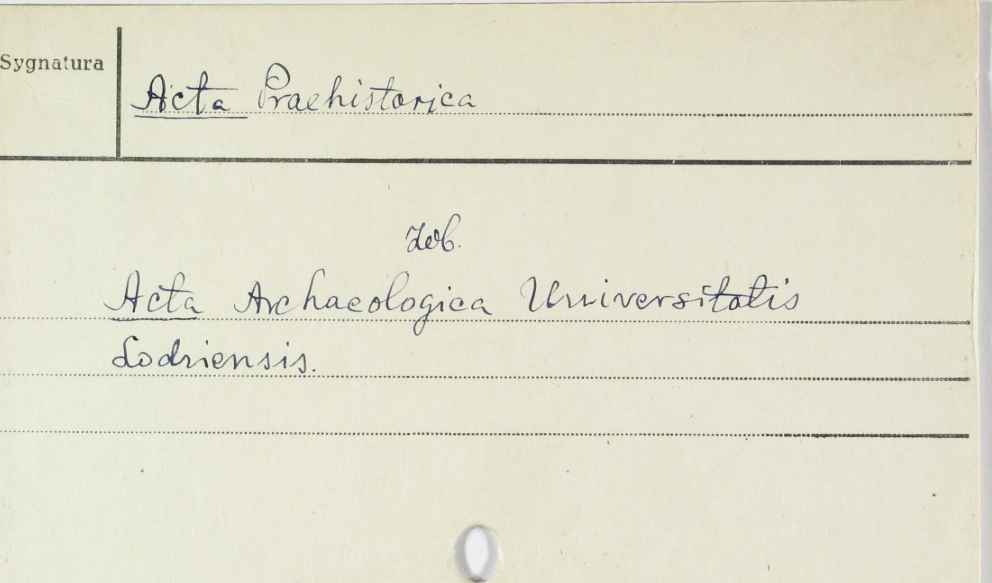 Sygnatura
Acta Praehistorica
Zob.
Acta Archaeologica Universitatis
Lodziensis.